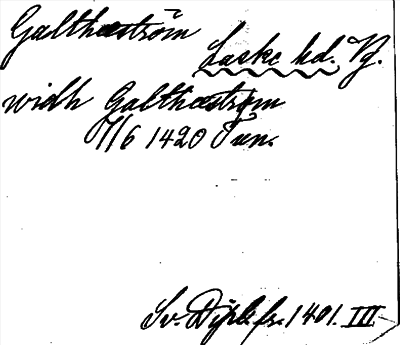 Galthæström
Laske hd. Vg.
widh Galthæstrøm
17/6 1420 Tun.
Sv. Dipl. fr. 1401. III